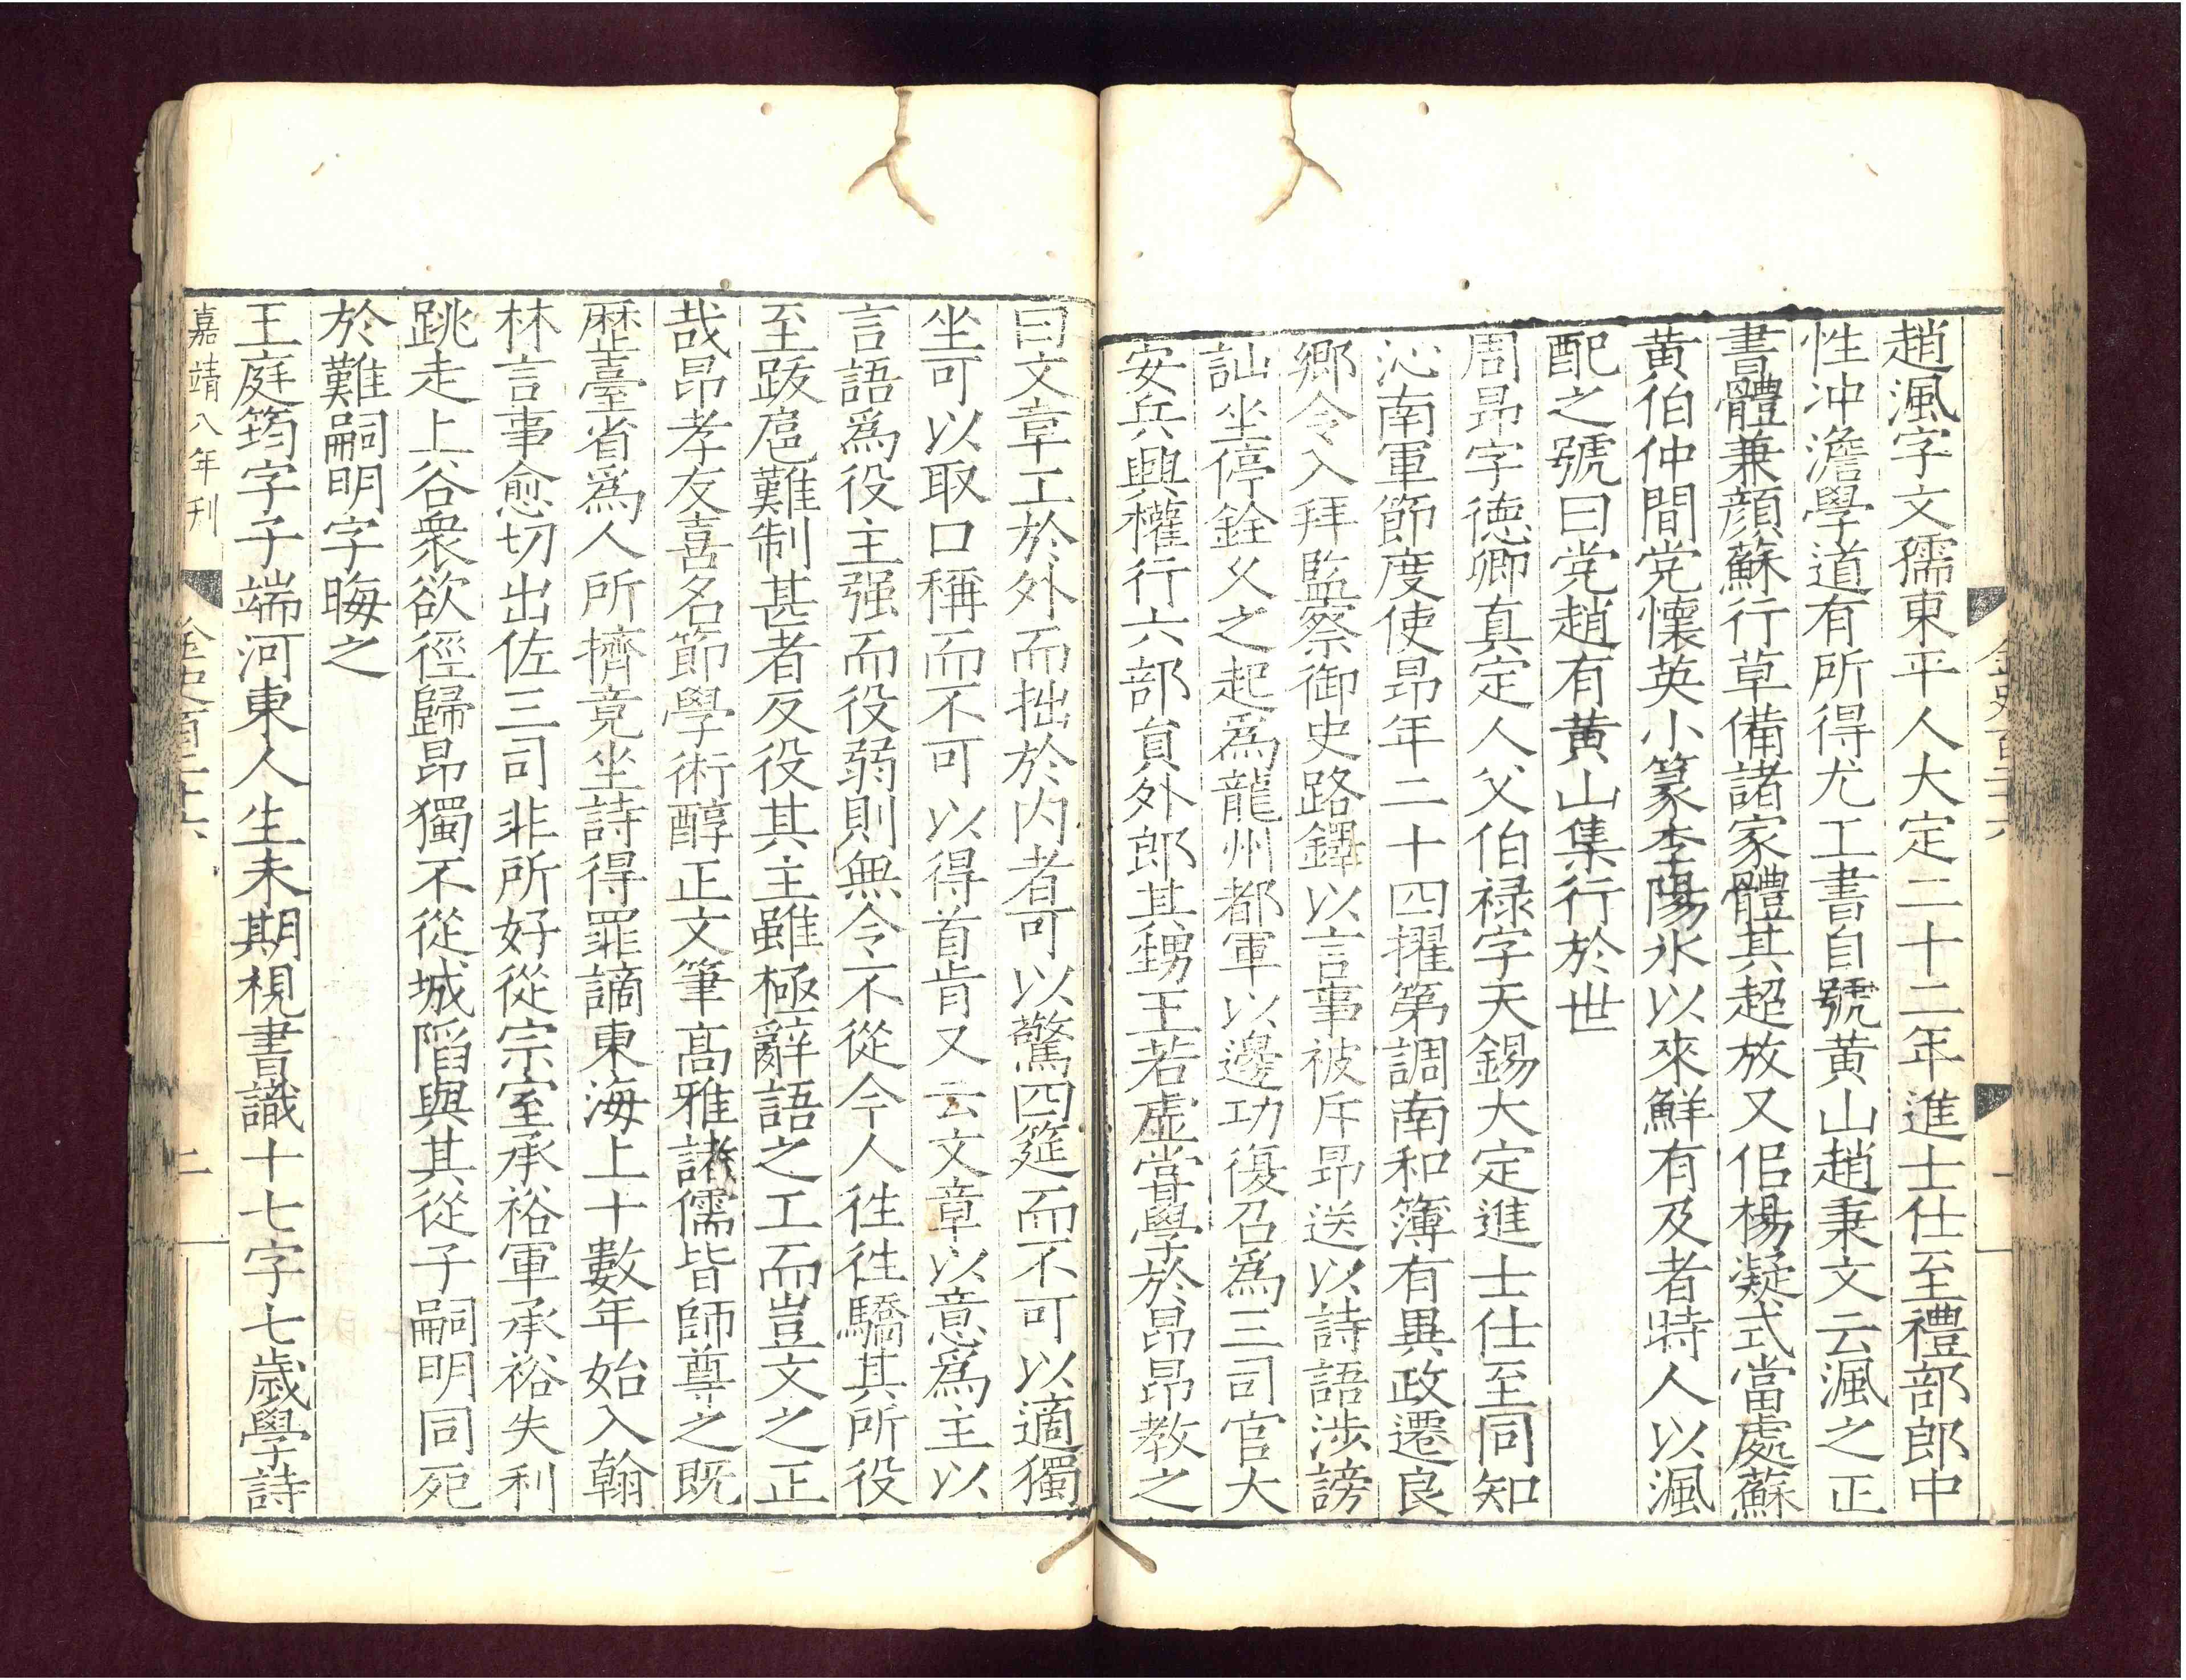 趙渢字文孺東平人大定二十二年進士仕至禮部郎中
性沖澹學道有所得尤工書自號黃山趙秉文云渢之正
書體兼顏蘇行草備諸家體其超放又佀楊凝式當處蘇
黃伯仲間党懷英小篆李陽氷以來鮮有及者時人以渢
配之號曰党趙有黃山集行於世
周昂字德卿真定人父伯祿字天錫大定進士仕至同知
沁南軍節度使昂年二十四擢第調南和簿有異政遷良
鄉令入拜監察御史路鐸以言事被斥昂送以詩語涉謗
訕坐停銓久之起爲龍州都軍以邊功復召爲三司官大
安兵興權行六部員外郎其甥王若虛嘗學於昂昂教之
曰文章工於外而拙於內者可以驚四筵而不可以適獨
坐可以取口稱而不可以得首肯又云文章以意爲主以
言語爲役主强而役弱則無令不從今人徃徃驕其所役
至跋扈難制甚者反役其主雖極辭語之工而豈文之正
哉昂孝友喜名節學術醇正文筆高雅諸儒皆師尊之既
歷臺省爲人所擠竟坐詩得罪謫東海上十數年始入翰
林言事愈切出佐三司非所好從宗室承裕軍承裕失利
跳走上谷衆欲徑歸昂獨不從城陷與其從子嗣明同死
於難嗣明字晦之
王庭筠字子端河東人生未期視書識十七字七歲學詩
嘉靖八年刊
金史百二十六
二